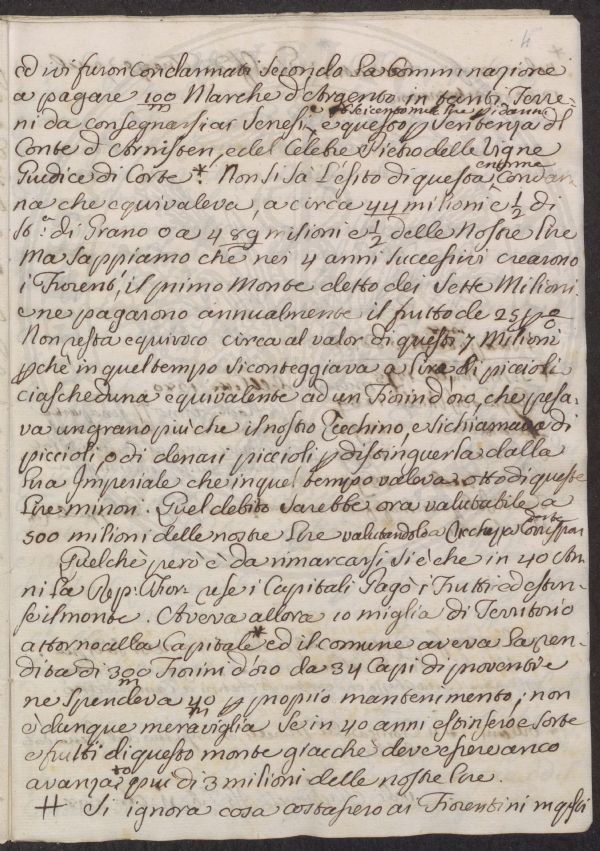 ed ivi furon Condannati Secondo la Comminazione
a pagare 100/m Marche d'Argento in tanti Terre-
ni da consegnarsi ai Senesi, e seicento mila lire pi danni
e questo p Sentenza del
Conte d'Arnisten, e del Celebre Pietro delle Vigne
Giudice di Corte * Non si sà L'esito di questa enorme Condan-
na che equivaleva, a circa 44 milioni e 1/2 di
St.a di Grano o a 489 milioni e 1/2 delle Nostre Lire
Ma Sappiamo che nei 4 anni Successivi crearono
i Fiorent.i, il primo Monte detto dei Sette Milioni
e ne pagarono annualmente il frutto de 25 p%
Non resta equivoco circa al valor di questi 7 Milioni
pchè in quel tempo si conteggiava a Lire di piccioli
ciascheduna equivalente ad un Fiorin d'oro, che pesa-
va un grano più che il nostro Zecchino, e si chiamava di
piccioli, o di denari piccioli p distinguerla dalla
Lira Imperiale che in quel tempo valeva otto di queste
Lire minori. Quel debito Sarebbe ora valutabile a
500 milioni delle nostre Lire valutandolo a Ricchezza Corrispondente
Quel che però è da rimarcarsi si è che in 40 An-
ni la Rep: Fior: rese i Capitali Pagò i Frutti ed estin-
se il monte. Aveva allora 10 miglia di Territorio
attorno alla Capitale * ed il comune aveva la ren-
dita di 300/m Fiorini d'oro da 34 Capi di proventi e
ne Spendeva 40/m p proprio mantenimento; non
è dunque meraviglia Se in 40 anni estinsero e Sorte
e frutti di questo monte giacchè deve essere anco
avanzato più di 3 milioni delle nostre Lire.
# Si ignora cosa costassero ai Fiorentini in questi